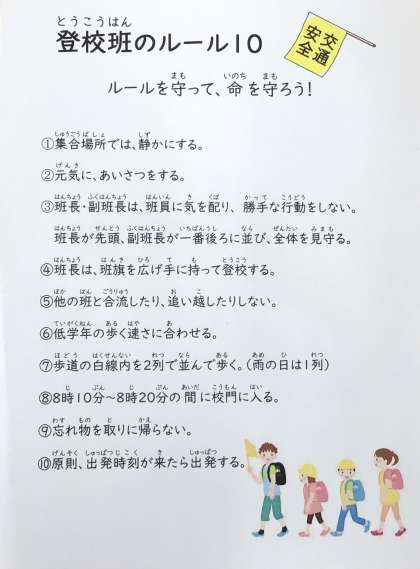 とうこうはん
登校班のルール10
交通
安全
まも いのち まも
ルールを守って、命を守ろう!
しゅうごうばしょ しず
①集合場所では、静かにする。
げんき
②元気に、あいさつをする。
はんちょう ふくはんちょう はんいん き くば かって こうどう
③班長・副班長は、班員に気を配り、勝手な行動をしない。
はんちょう せんとう ふくはんちょう いちばんうし なら ぜんたい みまも
班長が先頭、副班長が一番後ろに並び、全体を見守る。
はんちょう はんき ひろ て も とうこう
④班長は、班旗を広げ手に持って登校する。
ほか はん ごうりゅう お こ
⑤他の班と合流したり、追い越したりしない。
ていがくねん ある はや あ
⑥低学年の歩く速さに合わせる。
ほどう はくせんない れつ なら ある あめ ひ れつ
⑦歩道の白線内を2列で並んで歩く。(雨の日は1列)
じ ぷん じ ぷん あいだ こうもん はい
⑧8時10分~8時20分の間に校門に入る。
わす もの と かえ
⑨忘れ物を取りに帰らない。
げんそく しゅっぱつじこく き しゅっぱつ
⑩原則、出発時刻が来たら出発する。